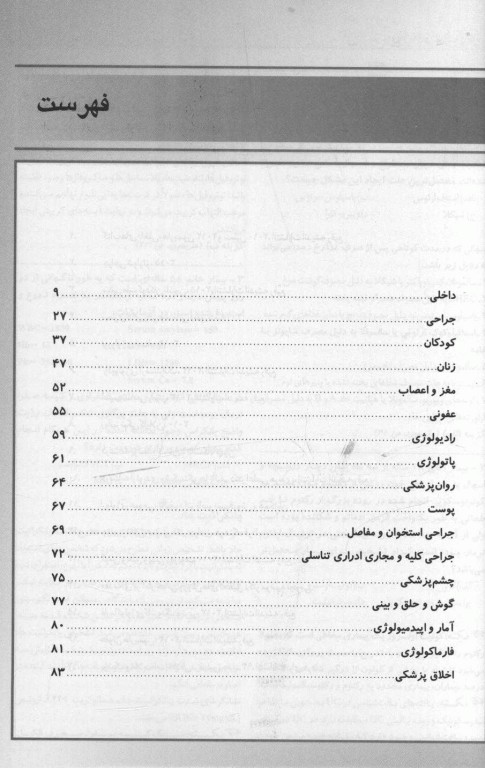 فهرست
داخلی ۹
جراحی ۲۷
کودکان ۳۷
زنان ۴۷
مغز و اعصاب ۵۲
عفونی ۵۵
رادیولوژی ۵۹
پاتولوژی ۶۱
روان‌پزشکی ۶۴
پوست ۶۷
جراحی استخوان و مفاصل ۶۹
جراحی کلیه و مجاری ادراری تناسلی ۷۲
چشم‌پزشکی ۷۵
گوش و حلق و بینی ۷۷
آمار و اپیدمیولوژی ۸۰
فارماکولوژی ۸۱
اخلاق پزشکی ۸۳